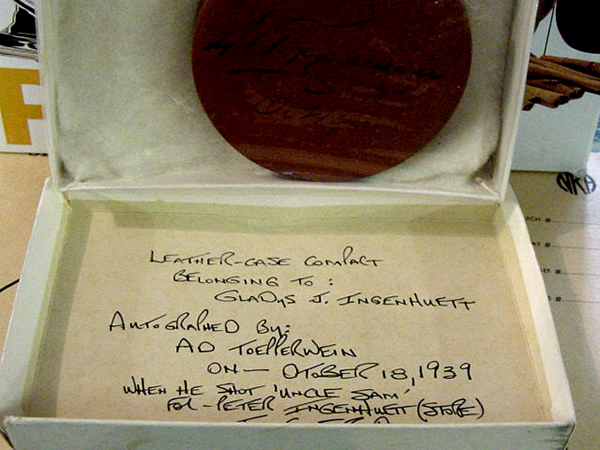 F
Toepperwein
LEATHER-CASE COMPACT
BELONGING TO :
GLADYS J. INGENHUETT
AUTOGRAPHED BY:
AD TOEPPERWEIN
ON — OTOBER 18, 1939
WHEN HE SHOT 'UNCLE SAM'
FOR - PETER INGENHUETT (STORE)